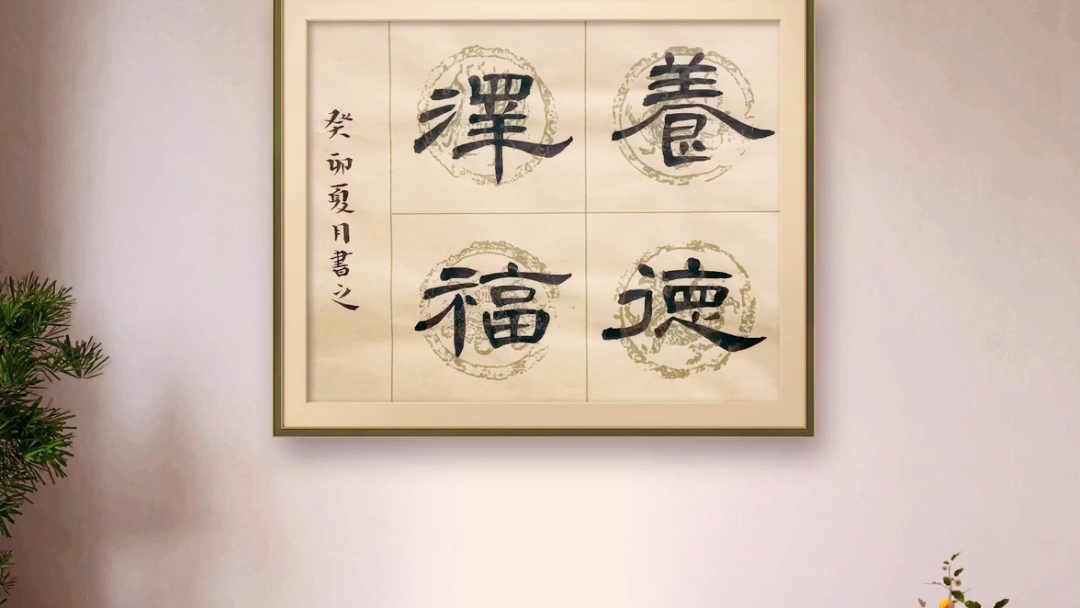 養德
澤福
癸卯夏月書之